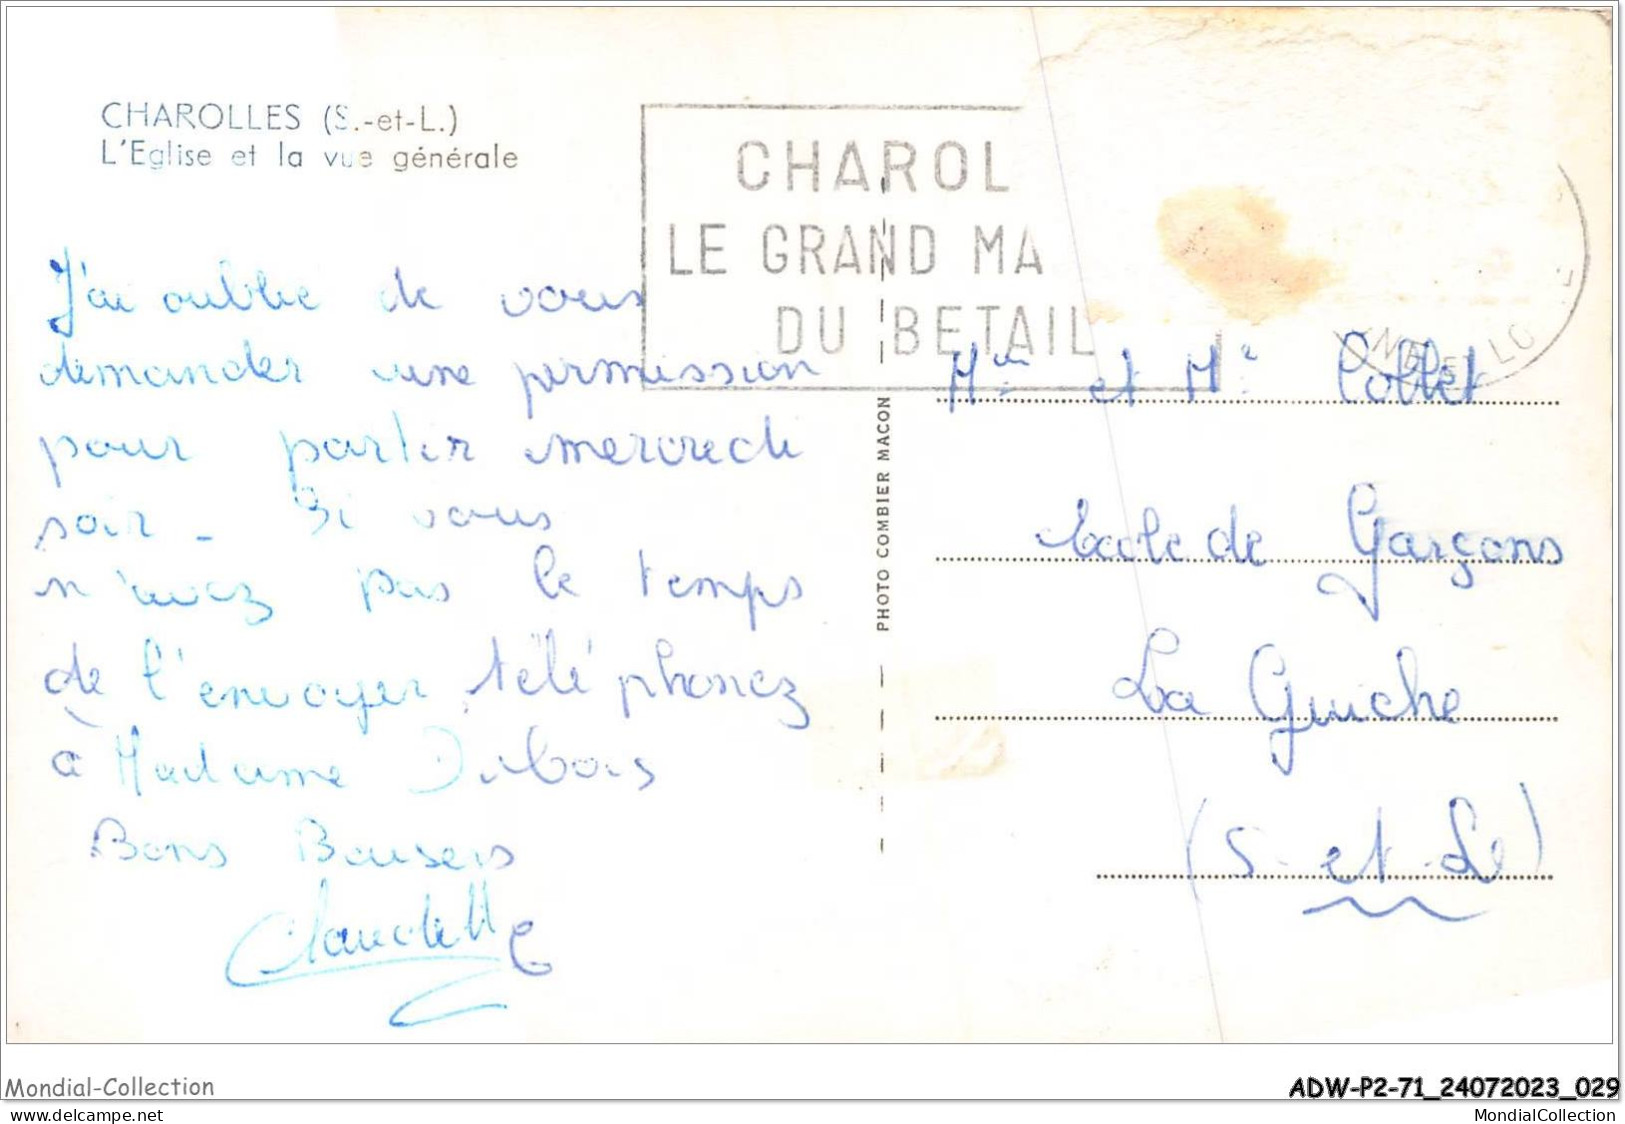 CHAROLLES (S.-et-L.)
L'Eglise et la vue générale
CHAROL
LE GRAND MA
DU BETAIL
J'ai oublié de vous
demander une permission
pour partir mercredi
soir - Si vous
n'avez pas le temps
de l'envoyer téléphonez
à Madame Dubois
Bons Baisers
Claudette
PHOTO COMBIER MACON
et Collet
école de Garçons
La Guiche
(S-et-L)
Mondial-Collection
ADW-P2-71_24072023_029
www.delcampe.net
MondialCollection